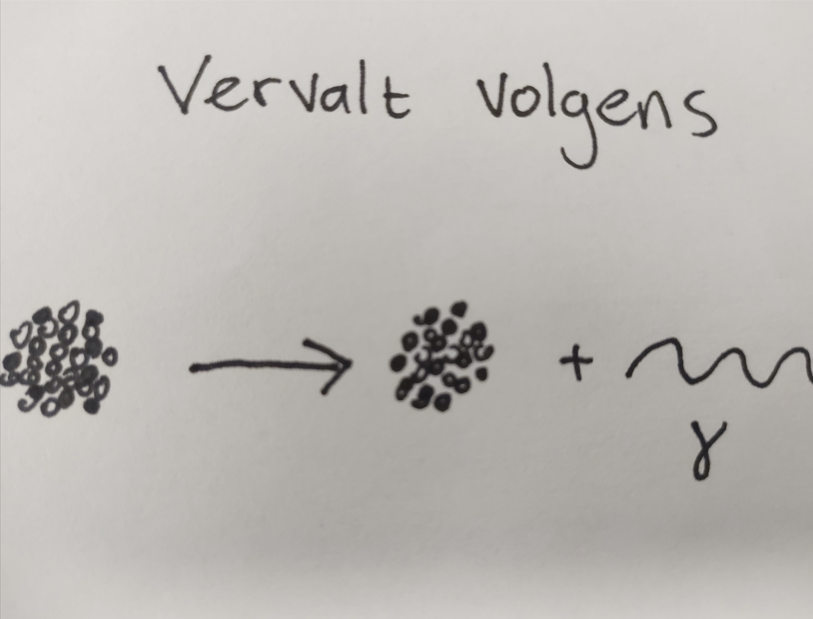 Vervalt volgens
+
γ